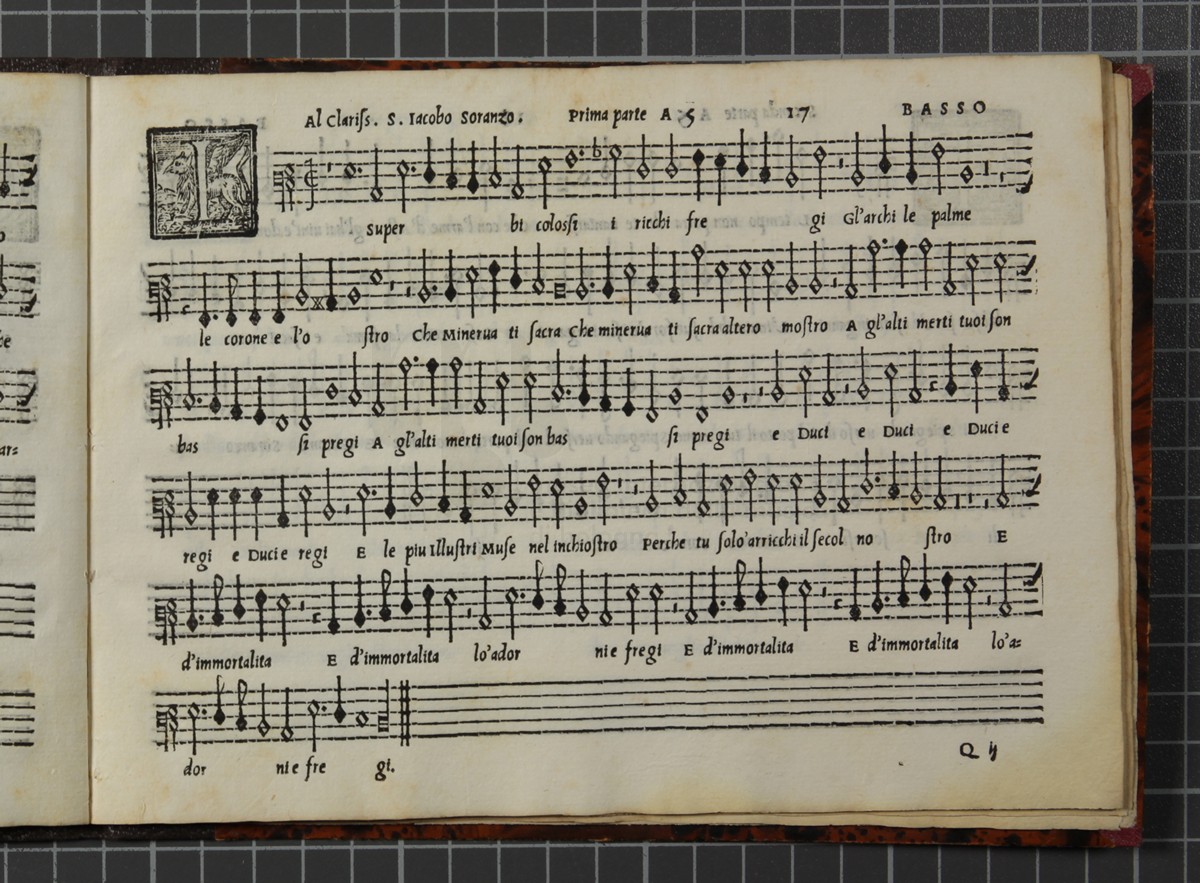 Al Clariſs. S. Iacobo Soranzo. Prima parte A 5 17 BASSO
I super bi coloſsi i ricchi fre gi Gl'archi le palme
le corone e l'o ſtro Che Minerua ti ſacra Che minerua ti ſacra altero moſtro A gl'alti merti tuoi ſon
bas ſi pregi A gl'alti merti tuoi ſon bas ſi pregi e Duci e Duci e Duci e
regi e Duci e regi E le piu Illuſtri Muſe nel inchioſtro Perche tu ſolo'arricchi il ſecol no ſtro E
d'immortalita E d'immortalita lo'ador ni e fregi E d'immortalita E d'immortalita lo'a=
dor ni e fre gi.
Q ij